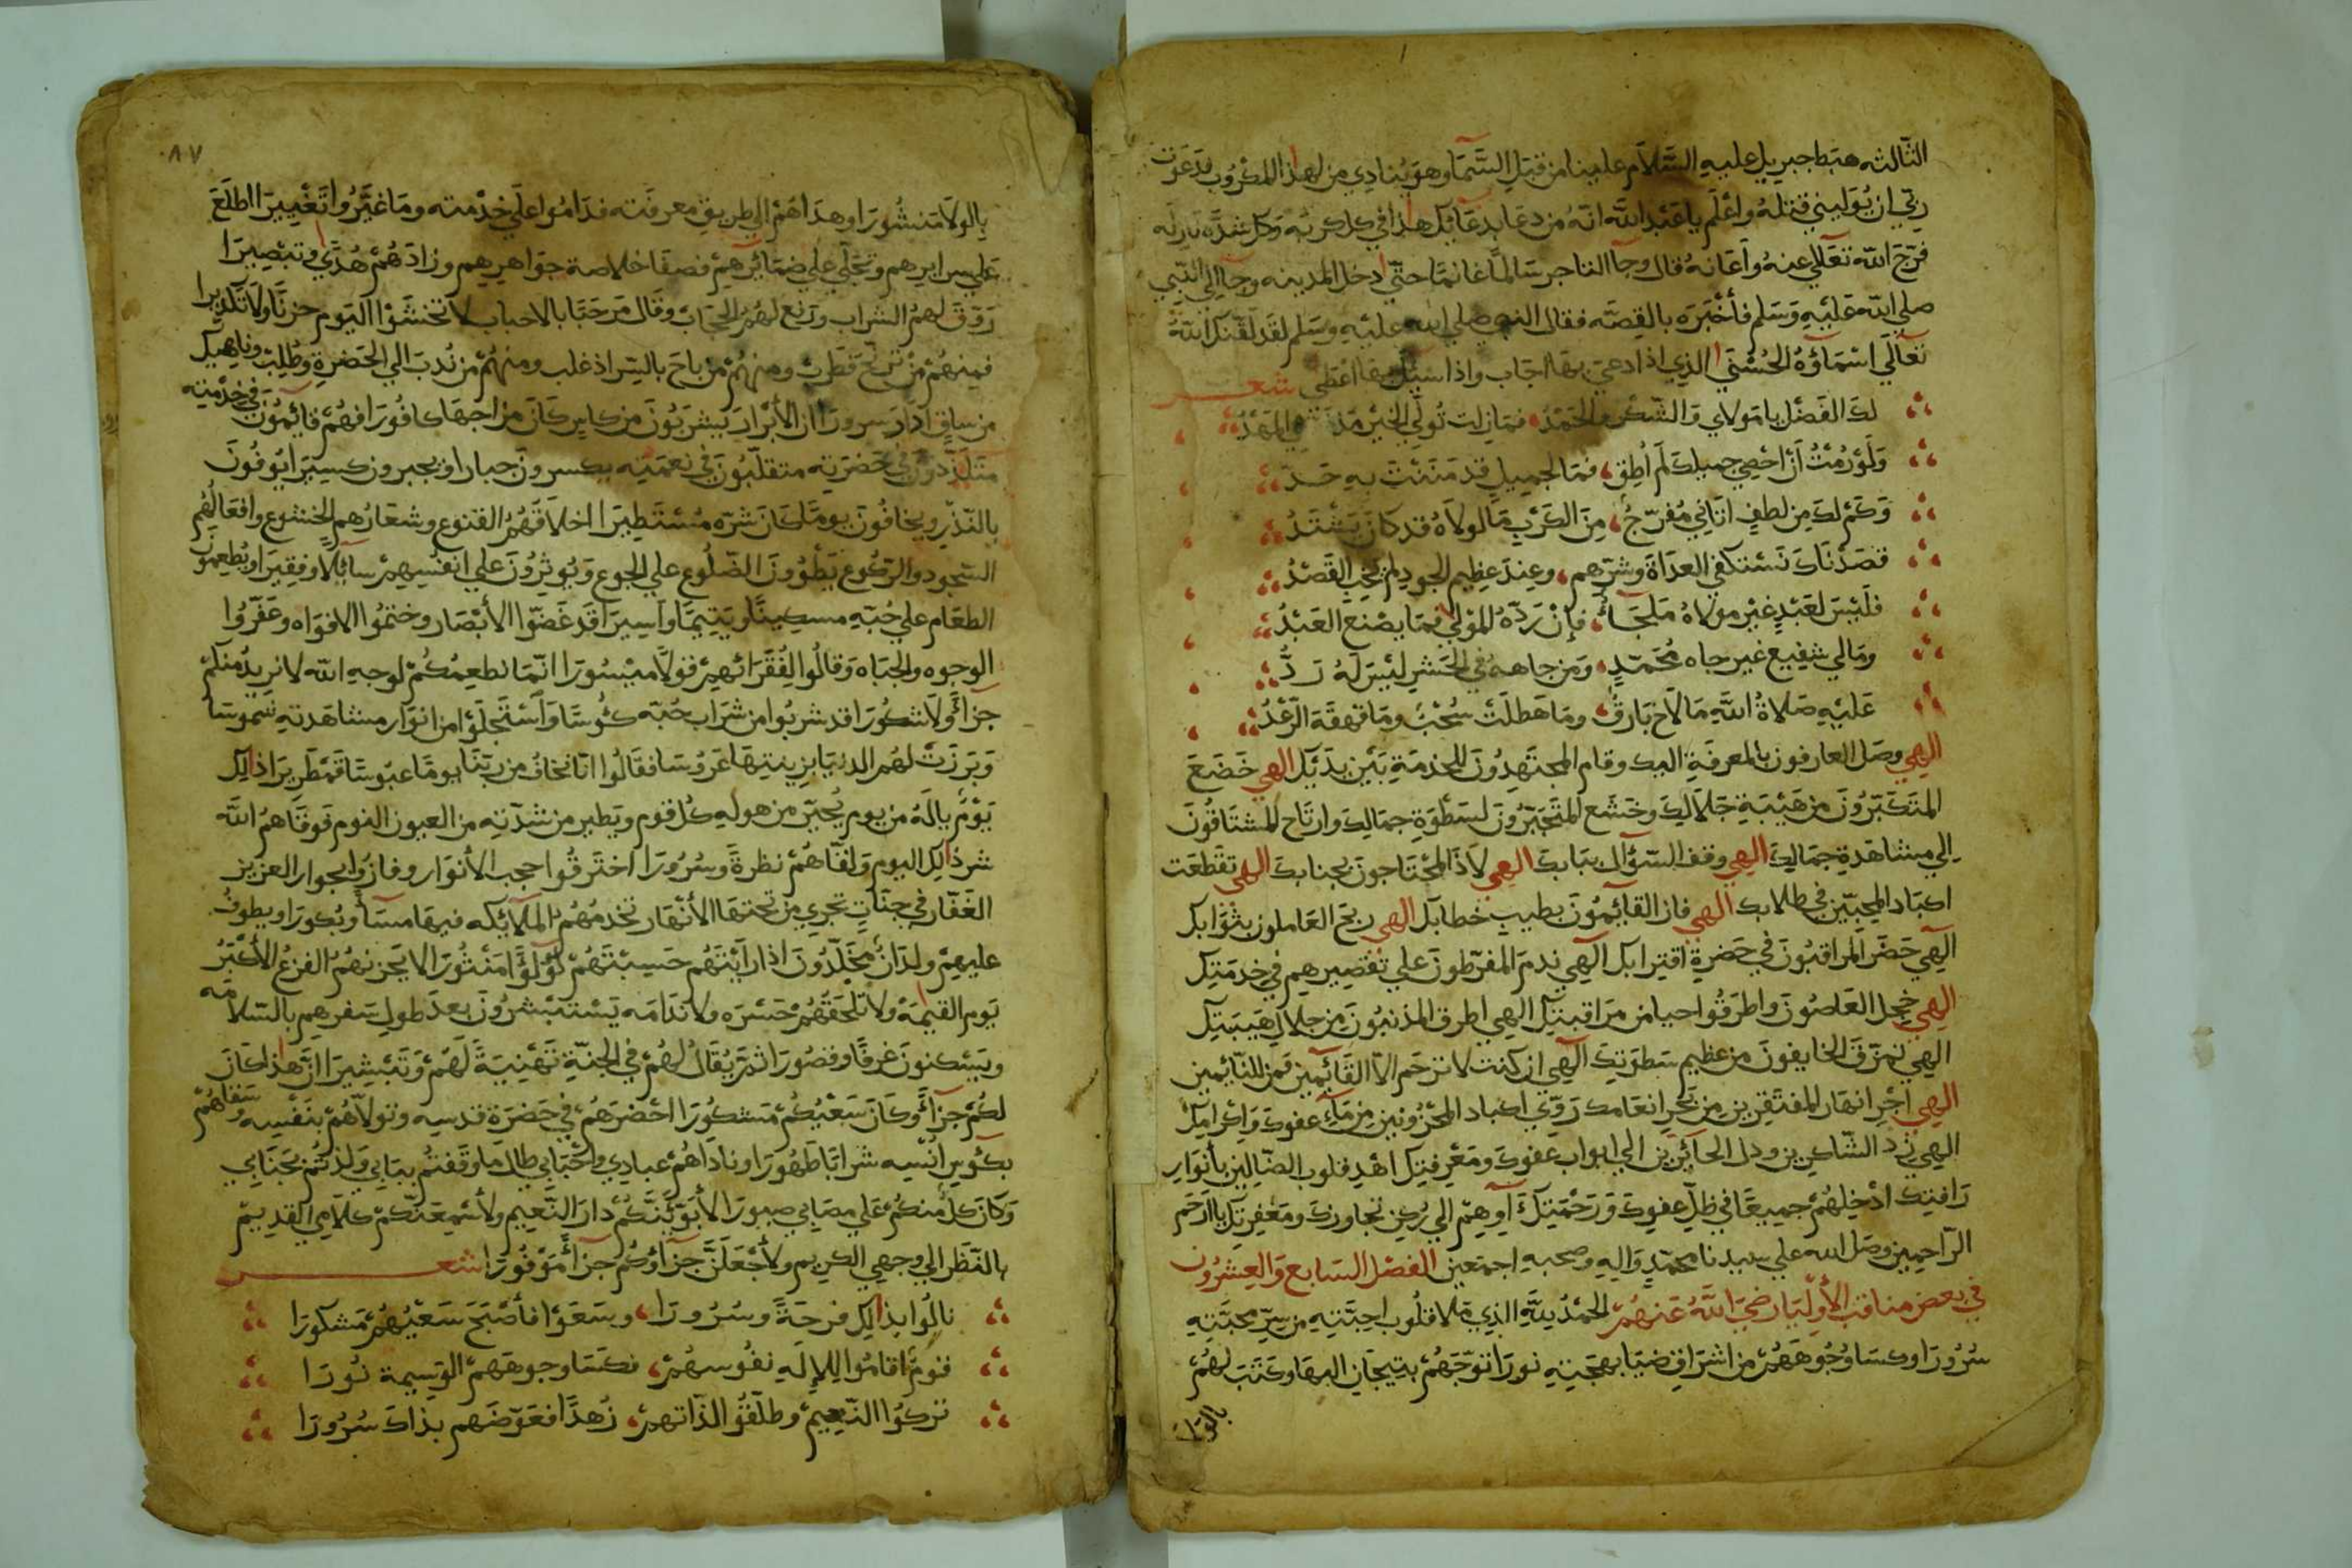 الثالثه هبط جبريل عليه السَّلام علينا من قبل السَّمآ وهو ينادي من لهذا المكروب فدعوت
ربّي ان يُوليني قتلهُ واعْلم يا عَبْد اللَّه انّهُ من دعا بدعآئك هذا في كل كربه وكل شدّه نازله
فرّج اللّه تعَالي عنهُ وأعَانهُ قال وجآ التاجر سَالماً غانمًا حتّي دخل المدينه وجآ الي النّبي
صلي اللّه عَليْهِ وَسَلم فأخْبَرَه بالقِصّه فقال النبي صلي الله عليْهِ وسَلم لقَد لقّنك اللّهُ
تعَالَي اسْمَآؤهُ الحُسْنَي الذي اذا دعيَ بهَا اجَاب واذا سُئِل بهَا اعْطي شعــر
لكَ الفَضْل يا مَولاي وَالشّكر والحَمْدُ، فمَازلت تُولّي الخيْر مُذ في المَهْدُ
وَلَوْ رُمْتُ أنْ احْصِي جميلكَ لم أُطِق، فمَا لجميلٍ قد مَنَنْتَ بهِ حَدّ
وَكمْ لكَ مِن لطفٍ اتَاني مُفرّجُ، مِنَ الكَرْبِ مَا لولاهُ قد كانَ يَشْتَدُ
قصَدْنَاكَ نَسْتكفي العدَاةَ وشرّهم، وعِندَ عظيم الجودِ لم يَخِب القَصْدُ
فلَيْسَ لعَبْدٍ غيْر مولاهُ مَلجَأُ، فإنْ رَدّهُ المَوْلي فمَا يصْنَع العَبْدُ
ومَالي شفِيع غير جاه مُحَمّدٍ، وَمَن جاههُ في الحَشْرِ ليْسَ لَهُ رَدُّ
عَليْهِ صَلاةُ اللَّهِ مَا لَاح بَارقُ، ومَا هَطلَتْ سُحْبُ ومَا قهقهَ الرّعْدُ
الهي وصَل العارفون بالمعرفَةِ اليك وقام المجتَهِدُونَ للخدمَةِ بَيْن يدَيْك الهي خَضَعَ
المتَكبّرُونَ من هَيْبَةِ جَلَالِكَ وخشَع المتَجَبّرُونَ لسَطْوَةِ جمَالِكَ وارتَاح المشتَاقُونَ
إلي مشاهَدةِ جمَالِكَ الهي وقف السّؤال ببَابكَ الهي لَاذَ المحْتَاجونَ بجنابكَ الهي تقطعَت
اكبَاد المحِبّينَ في طلابك الهي فاز القآئِمُونَ بطيبِ خطابَك الهي ربحَ العَاملون بثوَابك
الَهي حَضَر المراقبُونَ في حَضرةِ اقترابك الَهي ندمَ المفرّطونَ علي تقصِيرِهِم في خدمَتِكَ
الهي خجل العَاصُونَ واطرَقُوا حيا من مرَاقبتِكَ الهي اطرق المذنبُونَ من جلال هَيبَتِكَ
الهي تمزّقَ الخايفونَ من عظيم سَطوَتِكَ الَهي ان كنتَ لا ترحَم الا القَآئِمينَ فمَن للنّائِمين
الهي اجْرِ انهَار المفتَقِرينَ من بَحْرِ انعَامكَ رَوّي اكباد المحْزُونينَ مِن مَآءِ عفوكَ وَاكرامِكَ
الهي زد الشّاكرين ودل الحآئرين الي ابواب عَفوكَ ومَعْرفتِكَ اهْد قلوب الضّالين بأنوَارِ
رَافتِك ادْخِلهُمْ جميعًا في ظلّ عفوكَ وَرَحْمتِكَ آوهِم الي رُكن تجاوزكَ ومَغفِرتِكَ يا ارْحَم
الرّاحِمينَ وصَل الله علي سيدنا محمّدٍ وَالِهِ وصحبهِ اجمَعين الفصْل السَابع وَالعِشْرُون
في بعض مناقب الأوليَا رَضيَ اللَّهُ عَنهُمْ الحَمْدُ للَّهِ الذي مَلا قلُوب احِبّتِهِ من سِرّ محبّتِهِ
سُرُورًا وكسَا وُجُوهَهُمْ من اشرَاقِ ضيَا بهجَتِهِ نورَا توّجَهُمْ بتيجَان البهَا وكتَبَ لهُمْ
بالولا
٨٧
بالولا مَنشُورَا وهدَاهُمْ الي طريقِ معرفَته فدَامُوا علي خِدْمته ومَا غيّرُوا تَغْييرَا اطلَعَ
عَلي سرايرِهم وتجَلّي علي ضمَآئرِهِمْ فصفَا خلاصة جوَاهِرِهِم وزادَهُمْ هُدًي وتبْصيرَا
رَوّقَ لهمُ الشرَاب ورَفع لهُمُ الحجَابَ وقَال مَرحَبًا بالاحبَاب لا تخشَوْا اليَوم حزنًا ولا تَكديرا
فمِنهُمْ مَن ترنّحَ فطرب ومنهُمْ مَن باحَ بالسّر اذ غلب ومنهُمْ مَن نُدبَ الي الحَضرةِ وطلِب وناهيكَ
من ساقٍ ادَارَ سرورَا ان الأبْرارَ يشرَبُونَ من كاسٍ كَانَ مزاجهَا كافُورَا فهُمْ قائمُونَ في خِدْمتِه
متَلَذّذونَ في حَضرَتِه متقلّبُونَ في نعمَتِه يكسرونَ جبارا ويجبرون كسِيرَا يُوفُونَ
بالنّذْرِ ويخَافُونَ يومًا كَانَ شرّه مُسْتَطِيرَا اخلَاقهُمُ القنوع وشعَارُهم الخشوع وافعَالهُم
السّجود والرّكوع يَطوُونَ الضّلُوع علي الجوع وَيُوثِرُونَ علي انفسِهِمْ سآئلًا وفقِيرَا ويُطعِمُونَ
الطعَام علي حُبّهِ مسكينًا ويَتِيمًا وَاسِيرَا قد غضّوا الأبْصَار وختمُوا الافوَاه وعَفّرُوا
الوجوه والجبَاه وَقالُوا لفُقَرَائهِمْ قولًا ميْسُورَا انّمَا نطعِمُكُمْ لوجهِ اللّه لا نريدُ منكمْ
جزآءً ولَا شكُورَا قد شربُوا من شرَاب حُبّه كئُوسًا وَاسْتَجلَوْا من انوَار مشاهَدتِهِ شمُوسَا
وَبَرزَتْ لهُم الدنيَا بزينتِهَا عَرُوسَا فقَالُوا انّا نخَافُ من ربّنَا يومًا عبُوسًا قمْطَرِيرَا ذالك
يَوْمٌ يالَهُ من يوم يُحيّر من هولِهِ كل قوم ويَطير من شدّتِه من العيون النوم فوقَاهمُ اللّه
شر ذالك اليوم وَلقّاهُمْ نظرةً وسُرُورَا اختَرقُوا حجب الأنوار وفازُوا بجوار العزيز
الغَفّار في جنّاتٍ تجري من تحتهَا الأنهَار تخدمُهُمُ الملآئِكه فيهَا مسَآءً وبُكورَا ويطوفُ
عليهِمْ ولدَانٌ مُخَلّدُونَ اذا رَأيْتَهُم حَسِبْتَهُمْ لُؤْلُؤًا مَنثُورَا لا يَحزنهُمُ الفزعُ الأكْبَرُ
يَوم القيٰمَه ولا تَلحَقهُمْ حَسْرَه ولا ندَامَه يَسْتَبْشرُونَ بعدَ طول سَفرهِم بالسّلامَه
ويَسْكنونَ غرفًا وقصُورَا ثمّ يُقَالُ لهُمْ في الجنّةِ تَهْنِيَةً لَهُمْ وَتَبْشِيرَا انّ هذا كَانَ
لكُمْ جزآءً وكَانَ سَعْيُكُمْ مَشكُورَا احْضرَهُمْ في حَضرَة قدسِه وتولاهُمْ بنَفسِه وسَقاهُمْ
بكؤوسِ انسِه شرابًا طهُورَا ونادَاهُمْ عبَادِي وأحْبَابي طال مَا وقَفتُم ببَابي وَلذتُم بجَنَابي
وَكَانَ كلٌ منكمْ علي مصَابي صبورَا لأبَوّئَنّكُمْ دارَ النّعِيم ولأسْمِعَنّكمْ كلَامي القدِيمْ
بالنّظَر الي وجهي الكريم ولأجْعَلَنّ جزآؤكُم جزآءً مَوْفُورَا شعــــــر
نالُوا بذالك فرحَةً وسُرُورَا، وسَعَوْا فأصْبَحَ سَعْيُهُمْ مَشكورَا
قومٌ اقامُوا للإلَهِ نفُوسهُمْ، فكسَا وجوهَهمْ الوَسِيمة نُورَا
تركُوا النّعِيمْ وطلّقُوا لذّاتهمْ، زُهدًا فعَوّضَهم بذَاكَ سُرُورَا